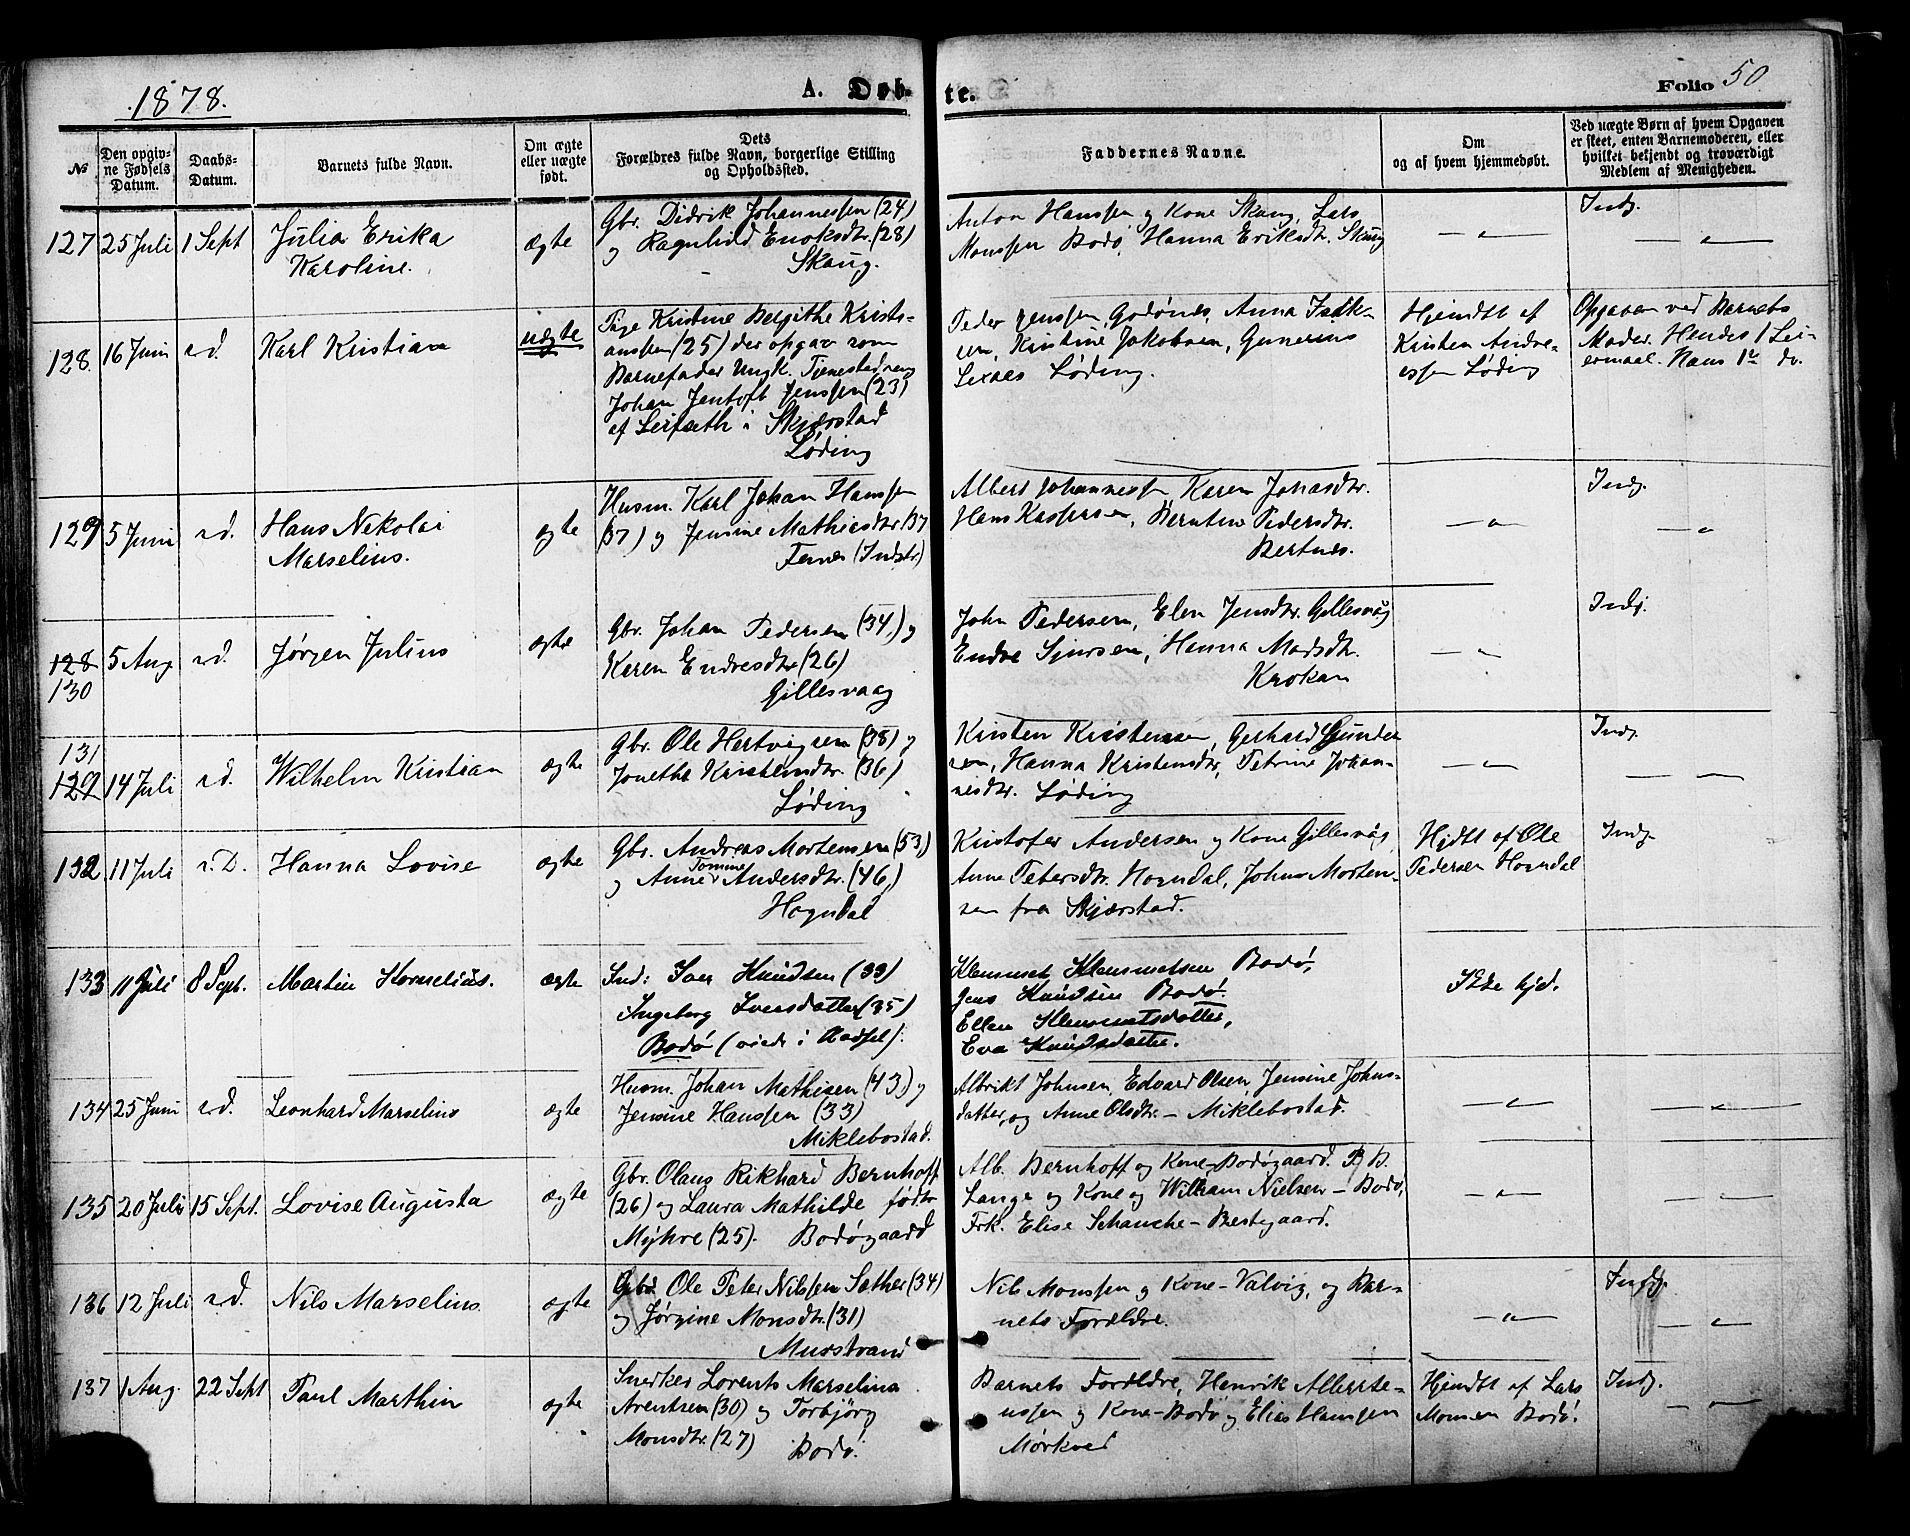 1878.
A. Døbte.
Folio 50
№
Den opgivne Fødsels Datum.
Daabs-Datum.
Barnets fulde Navn.
Om ægte eller uægte født.
Dets Forældres fulde Navn, borgerlige Stilling og Opholdssted.
Faddernes Navne.
Om og af hvem hjemmedøbt.
Ved uægte Børn af hvem Opgaven er skeet, enten Barnemoderen, eller hvilket bekjendt og troværdigt Medlem af Menigheden.
127 25 Juli 1 Sept Julia Erika
Karoline.
ægte
Gbr. Didrik Johannessen (24)
og Ragnhild Enoksdtr. (28)
Skaug.
Anton Hanssen og Kone Skaug, Lars
Monssen Bodø, Hanna Eriksdtr. Skaug
Indg.
128. 16 Juni s.d. Karl Kristian
uægte
Pige Kristine Bergithe Kristi-
anssen (25) der opgav som
Barnefader Ungk. Tjenestedreng
Johan Jentoft Jenssen (23)
af Leifseth i Skjærstad
Løding
Peder Jenssen Godønes, Anna Isak-
sen, Kristine Jakobsen, Gunerius
Løding.
Hjemdt af
Kristen Andre-
assen Løding
Opgaven ved Barnets
Moder. Hendes 1 Lei-
ermaal. Hans 1te do.
129 5 Juni s.d. Hans Nikolai
Marselius.
ægte
Husm. Karl Johan Hanssen
(37) og Jensine Mathiasdtr (37
Fenes (Indstr.)
Albert Johannessen, Karen Jonasdtr.
Hans Kaspersen, Berntine Pedersdtr.
Bertnes.
Indg.
128
130 5 Aug s.d. Jørgen Julius
ægte
Gbr. Johan Pedersen (34,) og
Karen Endresdtr (26)
Gillesvaag
John Pedersen, Elen Jensdtr. Gillesvåg
Endre Sjursen, Hanna Madsdtr.
Krokan
Indg.
131
129 14 Juli s.d. Wilhelm Kristian
ægte
Gbr. Ole Hertvigsen (38) og
Jonetha Kristensdtr. (36)
Løding
Kristen Kristensen, Gerhard Gunder
sen, Hanna Kristensdtr, Petrine Johan-
nesdtr. Løding
Indg.
132 11 Juli s.D. Hanna Lovise
ægte
Gbr. Andreas Mortensen (53,)
og Anne Tomine Andersdtr. (46,)
Hogndal
Kristofer Andersen og Kone Gillesvåg
Anne Petersdtr. Hogndal, Johns Morten-
sen fra Skjærstad.
Hjdt af Ole
Pedersen Hogndal
Indg.
133 11 Juli 8 Sept. Martin Kornelius.
ægte
Ind: Iver Knudsen (33)
Ingeborg Iversdatter (35)
Bodø (viede i Hadsel).
Klemmet Klemmetsen Bodø,
Jens Knudsen Bodø.
Ellen Klemmetsdatter,
Eva Knudsdatter.
Ikke hjd.
134 25 Juni s.d. Leonhard Marselius
ægte
Husm. Johan Mathisen (43) og
Jensine Hanssen (33)
Miklebostad.
Albrikt Johnsen, Edvard Olsen, Jensine Johns-
datter, og Anne Olsdtr. - Miklebostad.
135 20 Juli 15 Sept. Lovise Augusta
ægte
Gbr. Olaus Rikhard Bernhoff
(26) og Laura Mathilde født
Myhre (25). Bodøgaard
Alb. Bernhoff og Kone - Bodøgaard. B
Lange og Kone og William Nielsen - Bodø,
Frk. Elise Schanche - Prestegaard.
136 12 Juli s.d. Nils Marselius.
ægte
Gbr. Ole Peter Nilssen Sæther (34)
og Jørgine Monsdtr. (31)
Musstrand
Nils Monssen og Kone - Valvig, og Bar-
nets Forældre.
Indg.
137 1 Aug. 22 Sept Paul Marthin
ægte
Snedker Lorents Marselius
Arentsen (30) og Torbjørg
Monsdtr. (27) Bodø.
Barnets Forældre, Henrik Alberte-
ussen og Kone - Bodø og Elias Hanssen
Mørkved
Hjemdt af Lars
Monsen Bodø.
Indg.